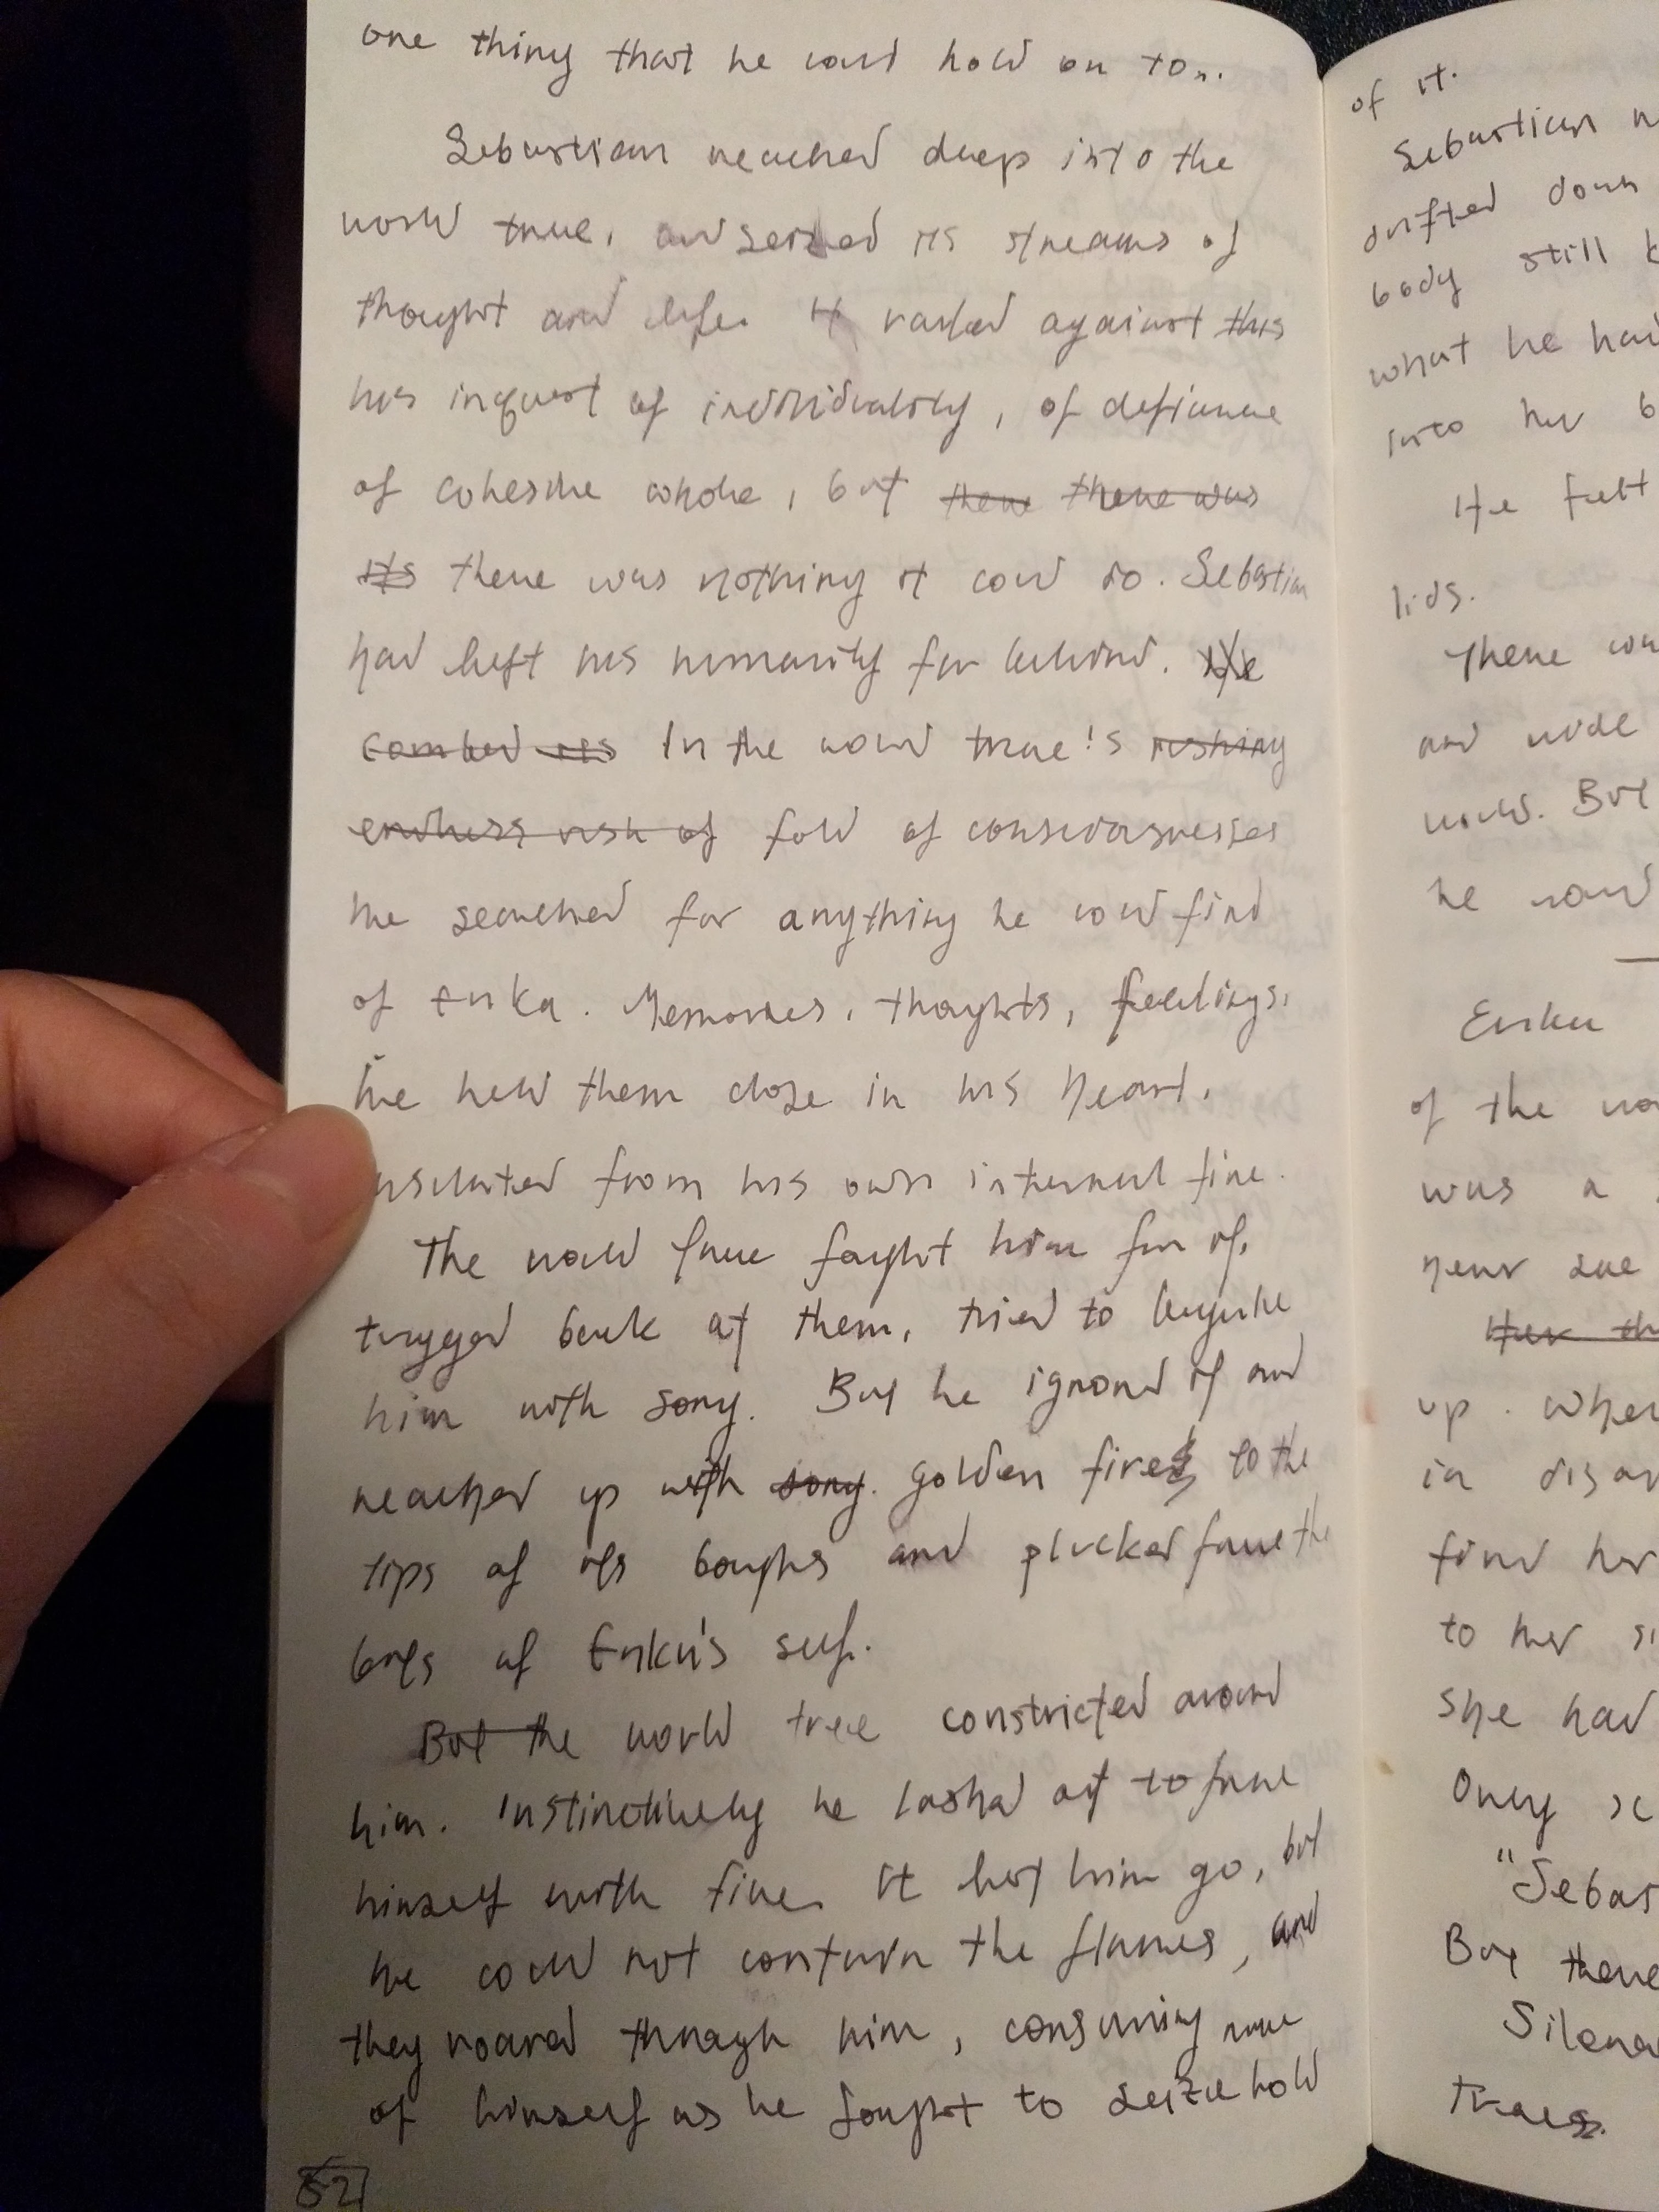 one thing that he could hold on to...
Sebastian reached deep into the
world tree, and seized its streams of
thought and life. It railed against this
his inquest of individuality, of defiance
of cohesive whole, but there there was
its there was nothing it could do. Sebastian
had left his humanity far behind. He
combed its In the world tree's rushing
endless rush of fold of consciousnesses
he searched for anything he could find
of Erika. Memories, thoughts, feelings.
he held them close in his heart,
insulated from his own internal fire.
The world tree fought him for it,
tugged back at them, tried to beguile
him with song. But he ignored it and
reached up with song. golden fires to the
tips of its boughs and plucked free the
bits of Erika's self.
But the world tree constricted around
him. Instinctively he lashed out to free
himself with fire. It let him go, but
he could not contain the flames, and
they roared through him, consuming more
of himself as he fought to seize hold
52
of it.
Sebastian
drifted down
body still
what he had
into her
He felt
lids.
There
and wide
world. But
he
Erika
of the
was a
near
Her
up. When
in
find her
to her
she had
Only
"Sebas
But there
Silence
Trees.